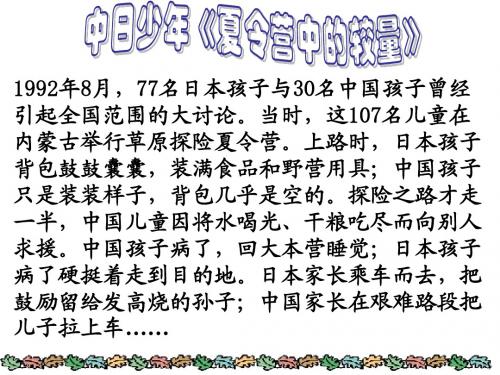 中日少年《夏令营中的较量》
1992年8月，77名日本孩子与30名中国孩子曾经
引起全国范围的大讨论。当时，这107名儿童在
内蒙古举行草原探险夏令营。上路时，日本孩子
背包鼓鼓囊囊，装满食品和野营用具；中国孩子
只是装装样子，背包几乎是空的。探险之路才走
一半，中国儿童因将水喝光、干粮吃尽而向别人
求援。中国孩子病了，回大本营睡觉；日本孩子
病了硬挺着走到目的地。日本家长乘车而去，把
鼓励留给发高烧的孙子；中国家长在艰难路段把
儿子拉上车……